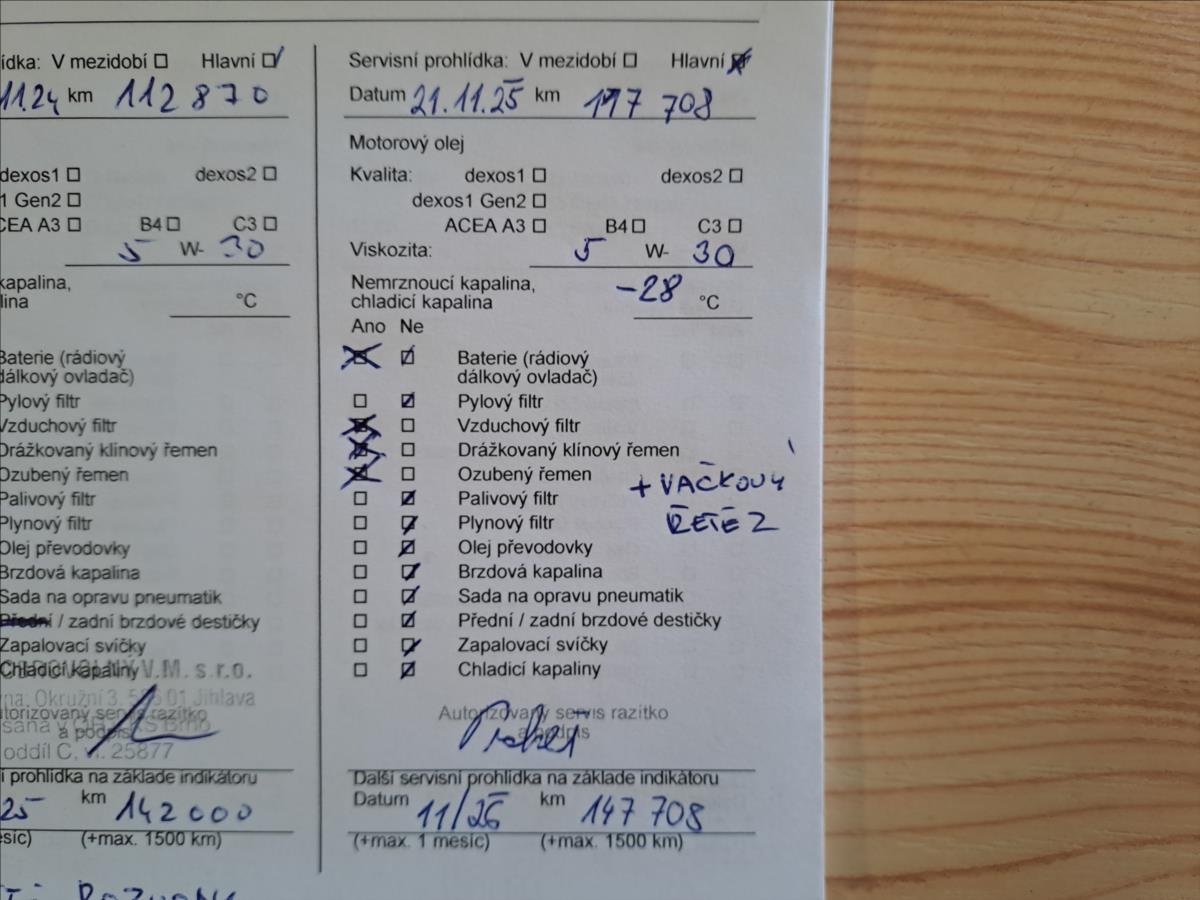 ídka: V mezidobí Hlavní
11.24 km 112 870
dexos1 dexos2
1 Gen2
CEA A3 B4 C3
5 W- 30
kapalina,
lina °C
Baterie (rádiový
dálkový ovladač)
Pylový filtr
Vzduchový filtr
Drážkovaný klínový řemen
Ozubený řemen
Palivový filtr
Plynový filtr
Olej převodovky
Brzdová kapalina
Sada na opravu pneumatik
Přední / zadní brzdové destičky
Zapalovací svíčky
Chladicí kapaliny
V.M. s.r.o.
na: Okružní 3, 586 01 Jihlava
torizovaný servis razítko
a podpis
oddíl C, vl. 25877
í prohlídka na základe indikátoru
25 km 142 000
ěsíc) (+max. 1500 km)
Servisní prohlídka: V mezidobí Hlavní
Datum 21.11.25 km 117 708
Motorový olej
Kvalita: dexos1 dexos2
dexos1 Gen2
ACEA A3 B4 C3
Viskozita: 5 W- 30
Nemrznoucí kapalina,
chladicí kapalina -28 °C
Ano Ne
Baterie (rádiový
dálkový ovladač)
Pylový filtr
Vzduchový filtr
Drážkovaný klínový řemen
Ozubený řemen + VAČKOVÝ
ŘETĚZ
Palivový filtr
Plynový filtr
Olej převodovky
Brzdová kapalina
Sada na opravu pneumatik
Přední / zadní brzdové destičky
Zapalovací svíčky
Chladicí kapaliny
Autorizovaný servis razítko
a podpis
Další servisní prohlídka na základe indikátoru
Datum 11/26 km 147 708
(+max. 1 mesíc) (+max. 1500 km)